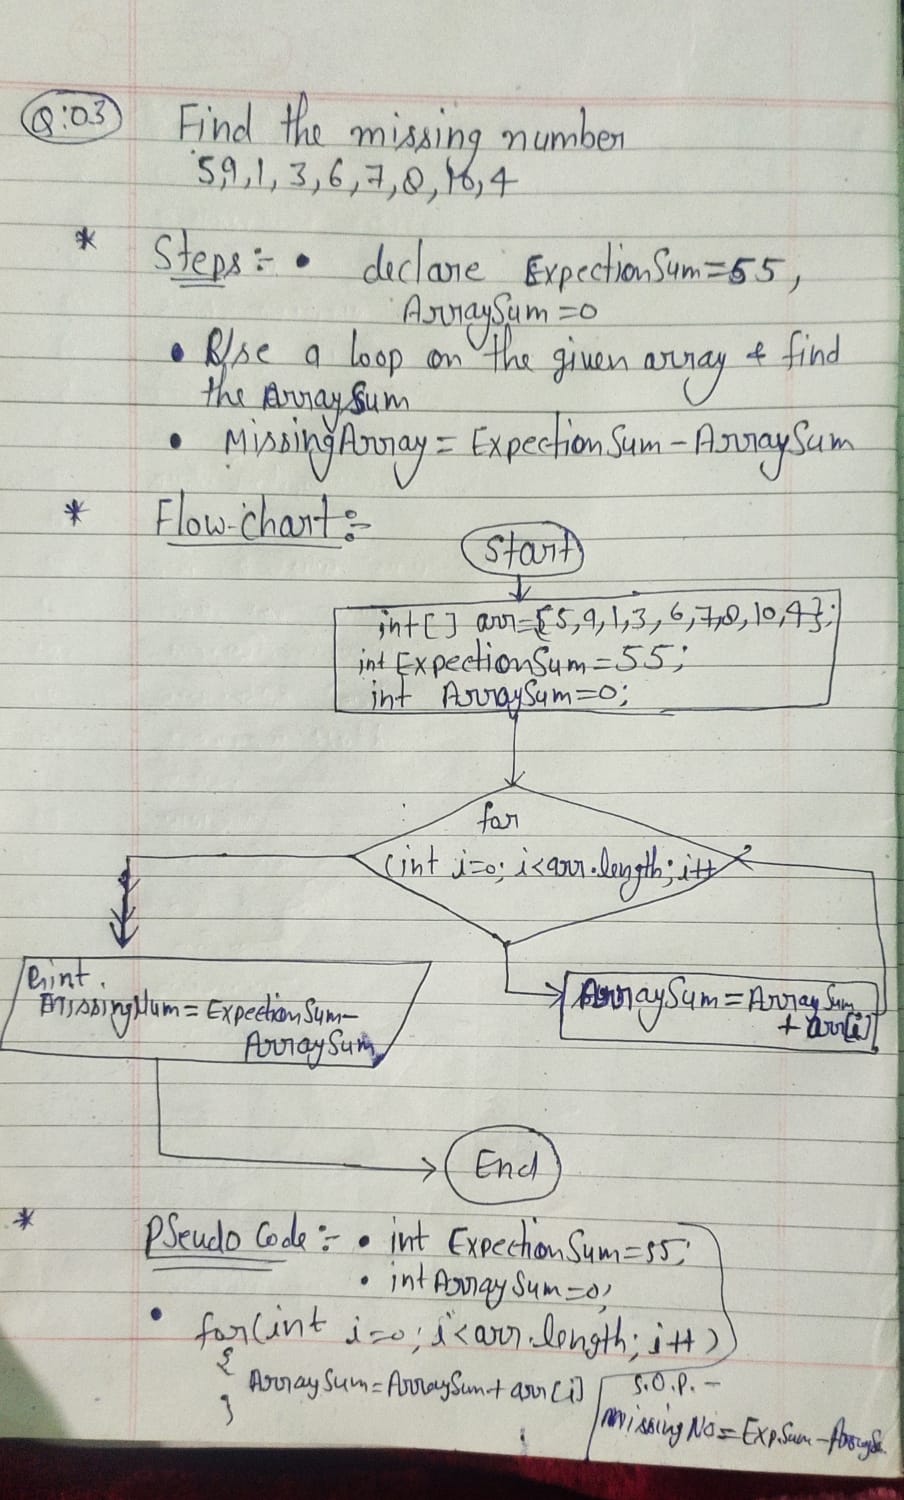 Q:03 Find the missing number
5,9,1,3,6,7,8,10,4
* Steps:- • declare ExpectionSum=55,
ArraySum=0
• Use a loop on the given array & find
the ArraySum
• MissingArray = ExpectionSum - ArraySum
* Flow-chart:-
Start
int[] arr={5,9,1,3,6,7,8,10,4};
int ExpectionSum=55;
int ArraySum=0;
for
(int i=0; i<arr.length; i++
Print.
MissingNum = ExpectionSum-
ArraySum
ArraySum = ArraySum
+ arr[i]
End
* PSeudo Code:- • int ExpectionSum=55;
• int ArraySum=0;
• for(int i=0; i<arr.length; i++)
{
ArraySum=ArraySum+arr[i]
}
S.O.P.-
missing No = Exp.Sum -